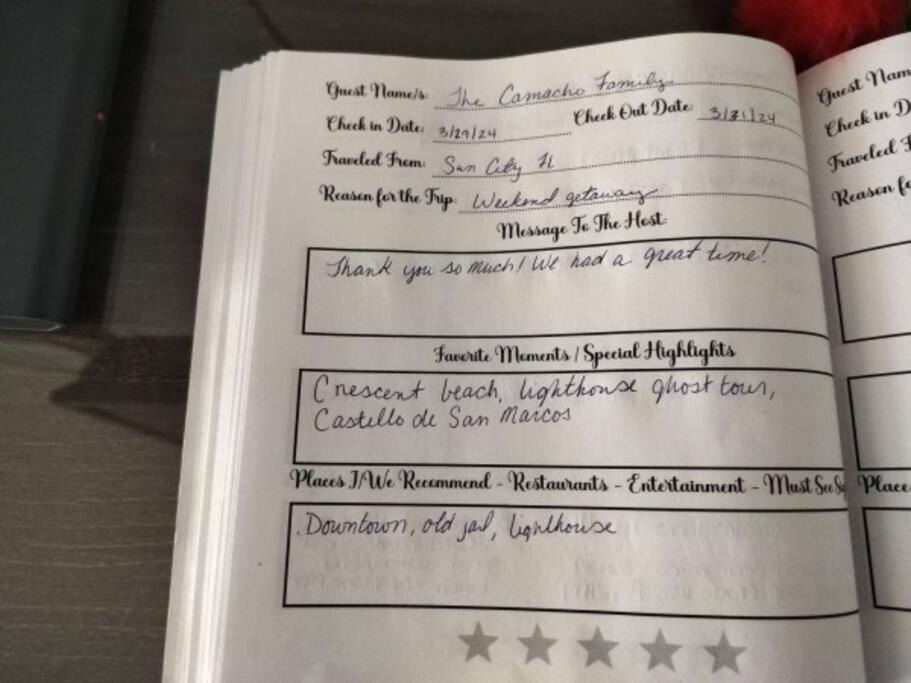 Guest Name/s: The Camacho Family
Check in Date: 3/29/24 Check Out Date: 3/31/24
Traveled From: Sun City Fl
Reason for the Trip: Weekend getaway
Message To The Host:
Thank you so much! We had a great time!
Favorite Moments / Special Highlights
Crescent beach, lighthouse ghost tour,
Castello de San Marcos
Places I/We Recommend - Restaurants - Entertainment - Must See S
Downtown, old jail, lighthouse
Guest Nam
Check in D
Traveled F
Reason fo
Place